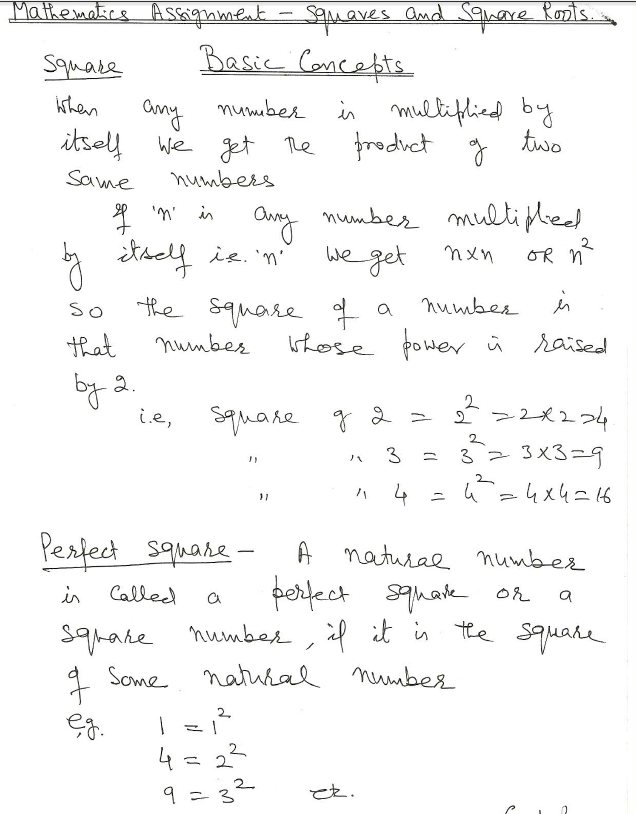 Mathematics Assignment - Squares and Square Roots.
Square Basic Concepts
When any number is multiplied by
itself we get the product of two
same numbers
If 'n' is any number multiplied
by itself i.e. 'n' we get n×n OR n²
so the square of a number is
that number whose power is raised
by 2.
i.e, square of 2 = 2² = 2×2=4
" " 3 = 3² = 3×3=9
" " 4 = 4² = 4×4=16
Perfect square - A natural number
is called a perfect square or a
square number, if it is the square
of some natural number
e.g. 1 = 1²
4 = 2²
9 = 3² etc.